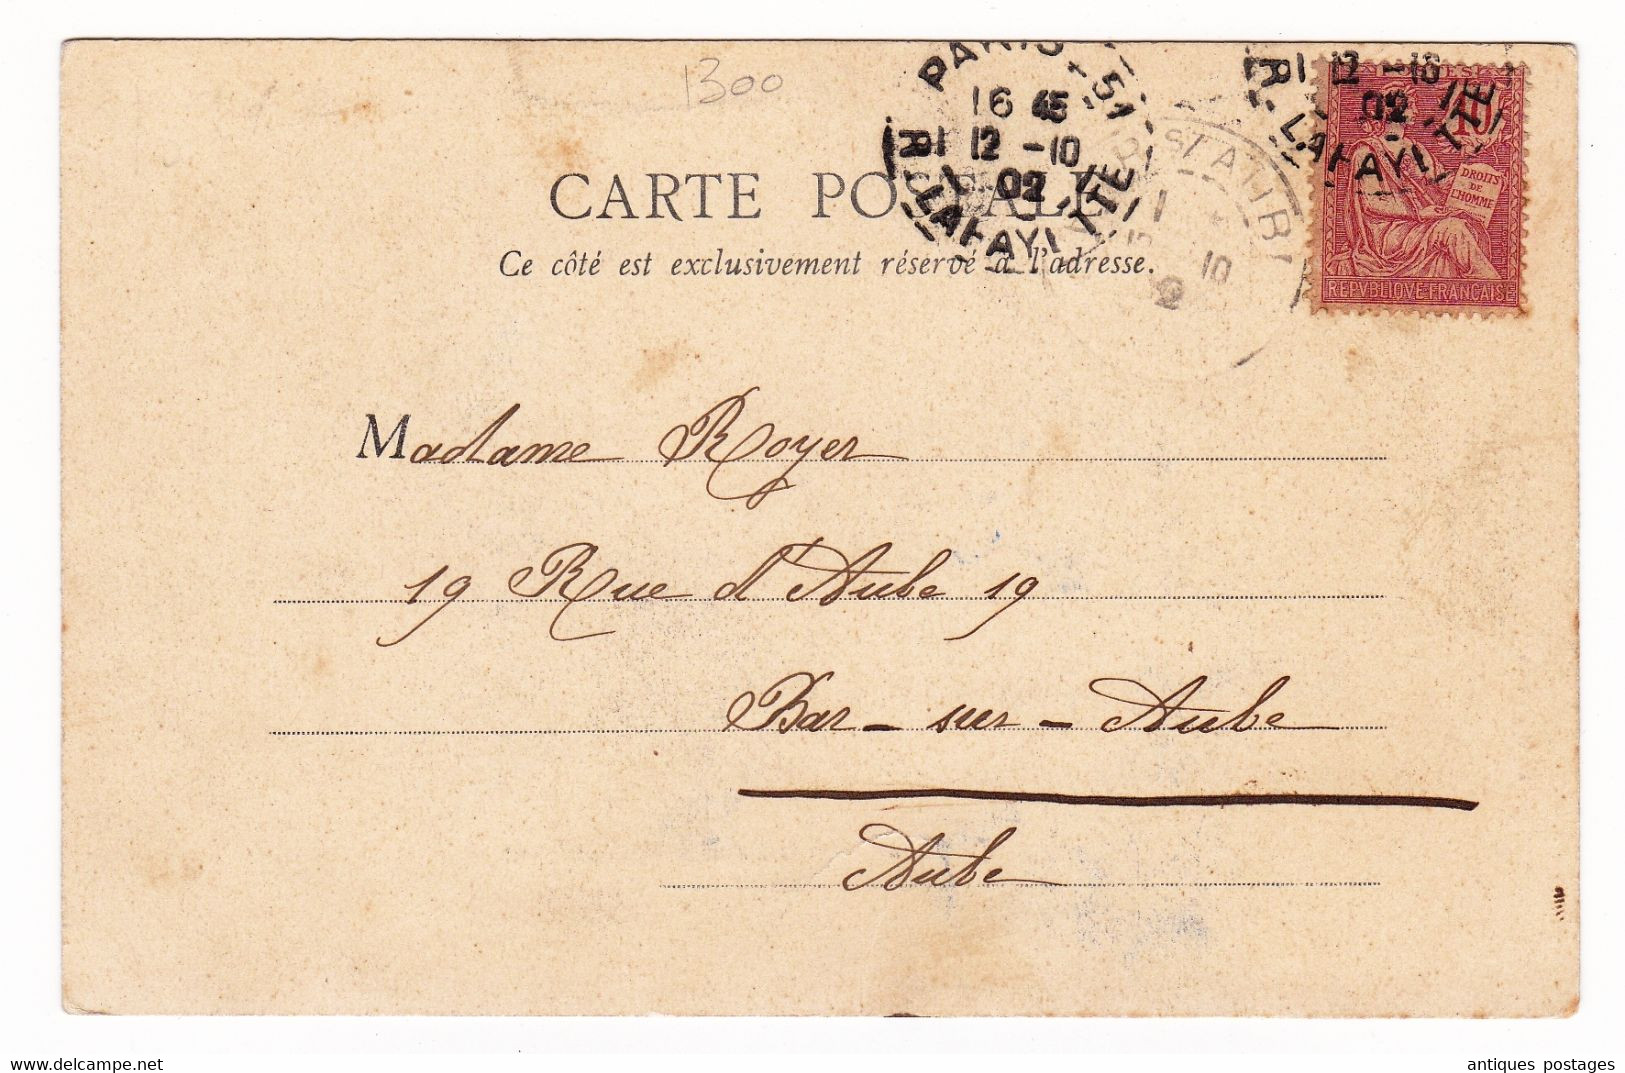 1300
PARIS - 51
16 45
12 -10
02
R. LAFAYETTE
12 -10
02
R. LAFAYETTE
10
DROITS
DE
L'HOMME
REPVBLIQVE FRANÇAISE
BAR-S/-AUBE
10
CARTE POSTALE
Ce côté est exclusivement réservé à l'adresse.
Madame Royer
19 Rue d'Aube 19
Bar-sur-Aube
Aube
antiques postages